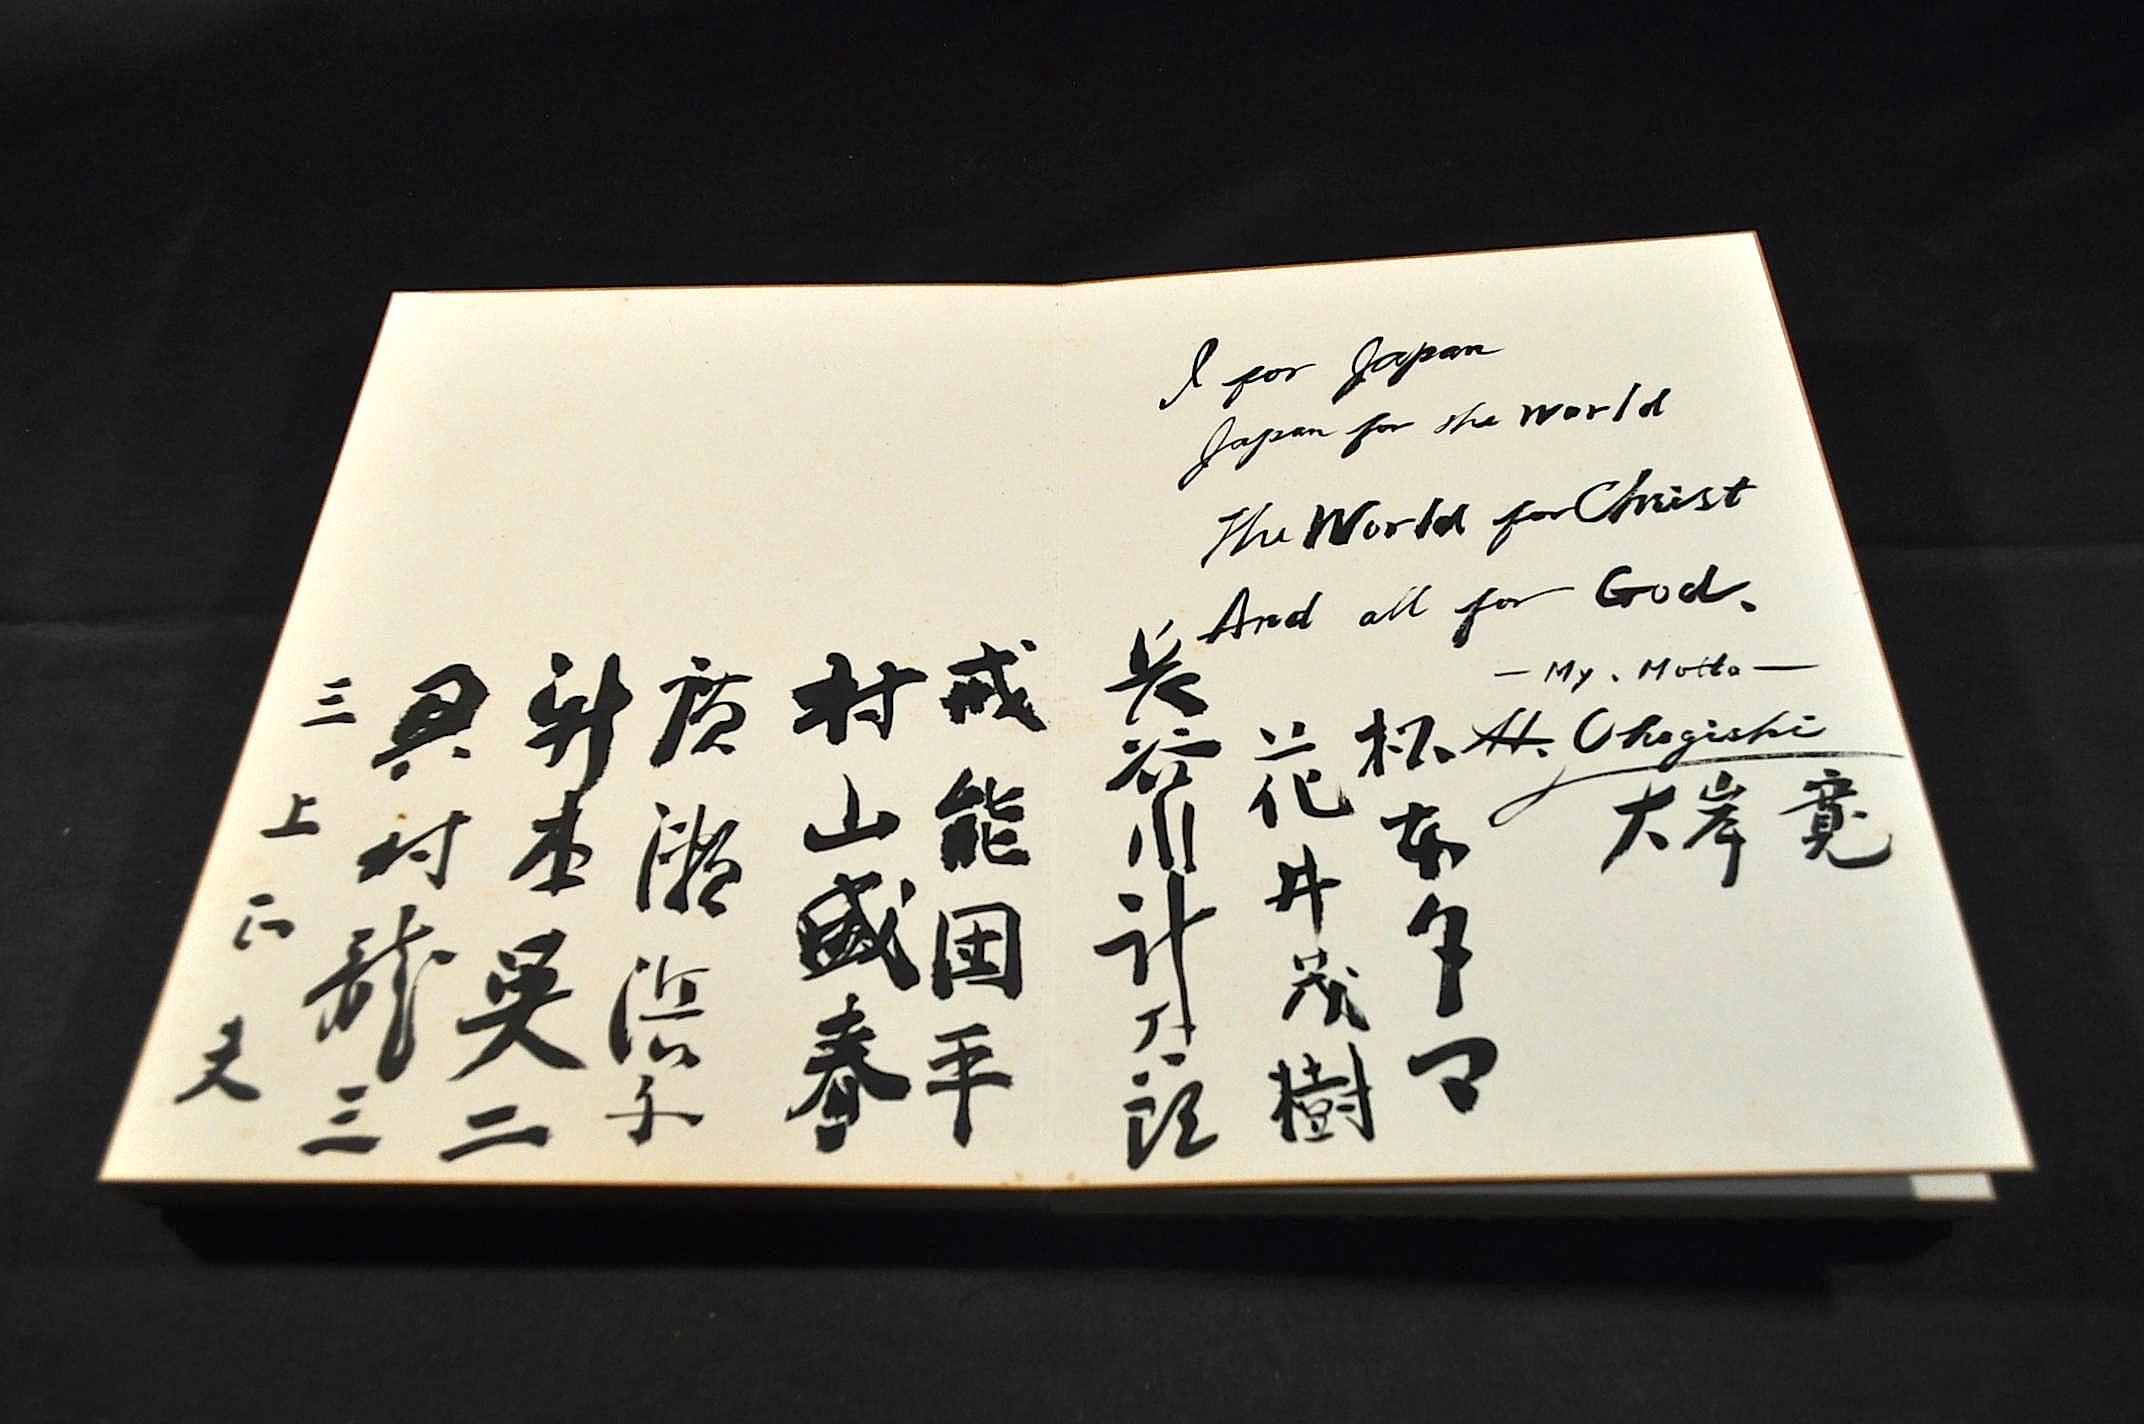 I for Japan
Japan for the World
The World for Christ
And all for God.
— My. Motto —
H. Ohogishi
大岸 寛
花井茂樹
長谷川計太郎
戒能団平
村山盛春
広瀬浜子
新本英二
奥村龍三
三上正夫